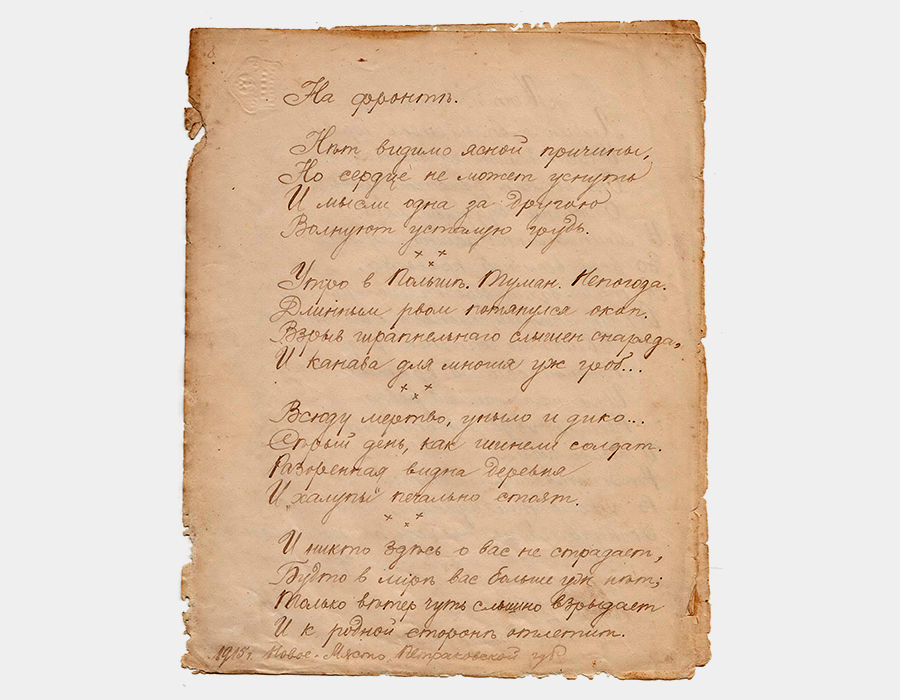 На фронтѣ.
Нѣт видимо ясной причины,
Но сердце не может уснуть
И мысли одна за другою
Волнуют усталую грудь.
Утро в Польшѣ. Туман. Непогода.
Длинным рвом потянулся окоп.
Взрыв шрапнельнаго слышен снаряда,
И канава для многих уж гроб...
Всюду мертво, уныло и дико...
Сѣрый день, как шинели солдат.
Разоренная видна деревня
И халупы печально стоят.
И никто здѣсь о вас не страдает,
Будто в мірѣ вас больше уж нѣт;
Только вѣтер чуть слышно взрыдает
И к родной сторонѣ отлетит.
1915 г. Новое-Място, Петраковской губ.